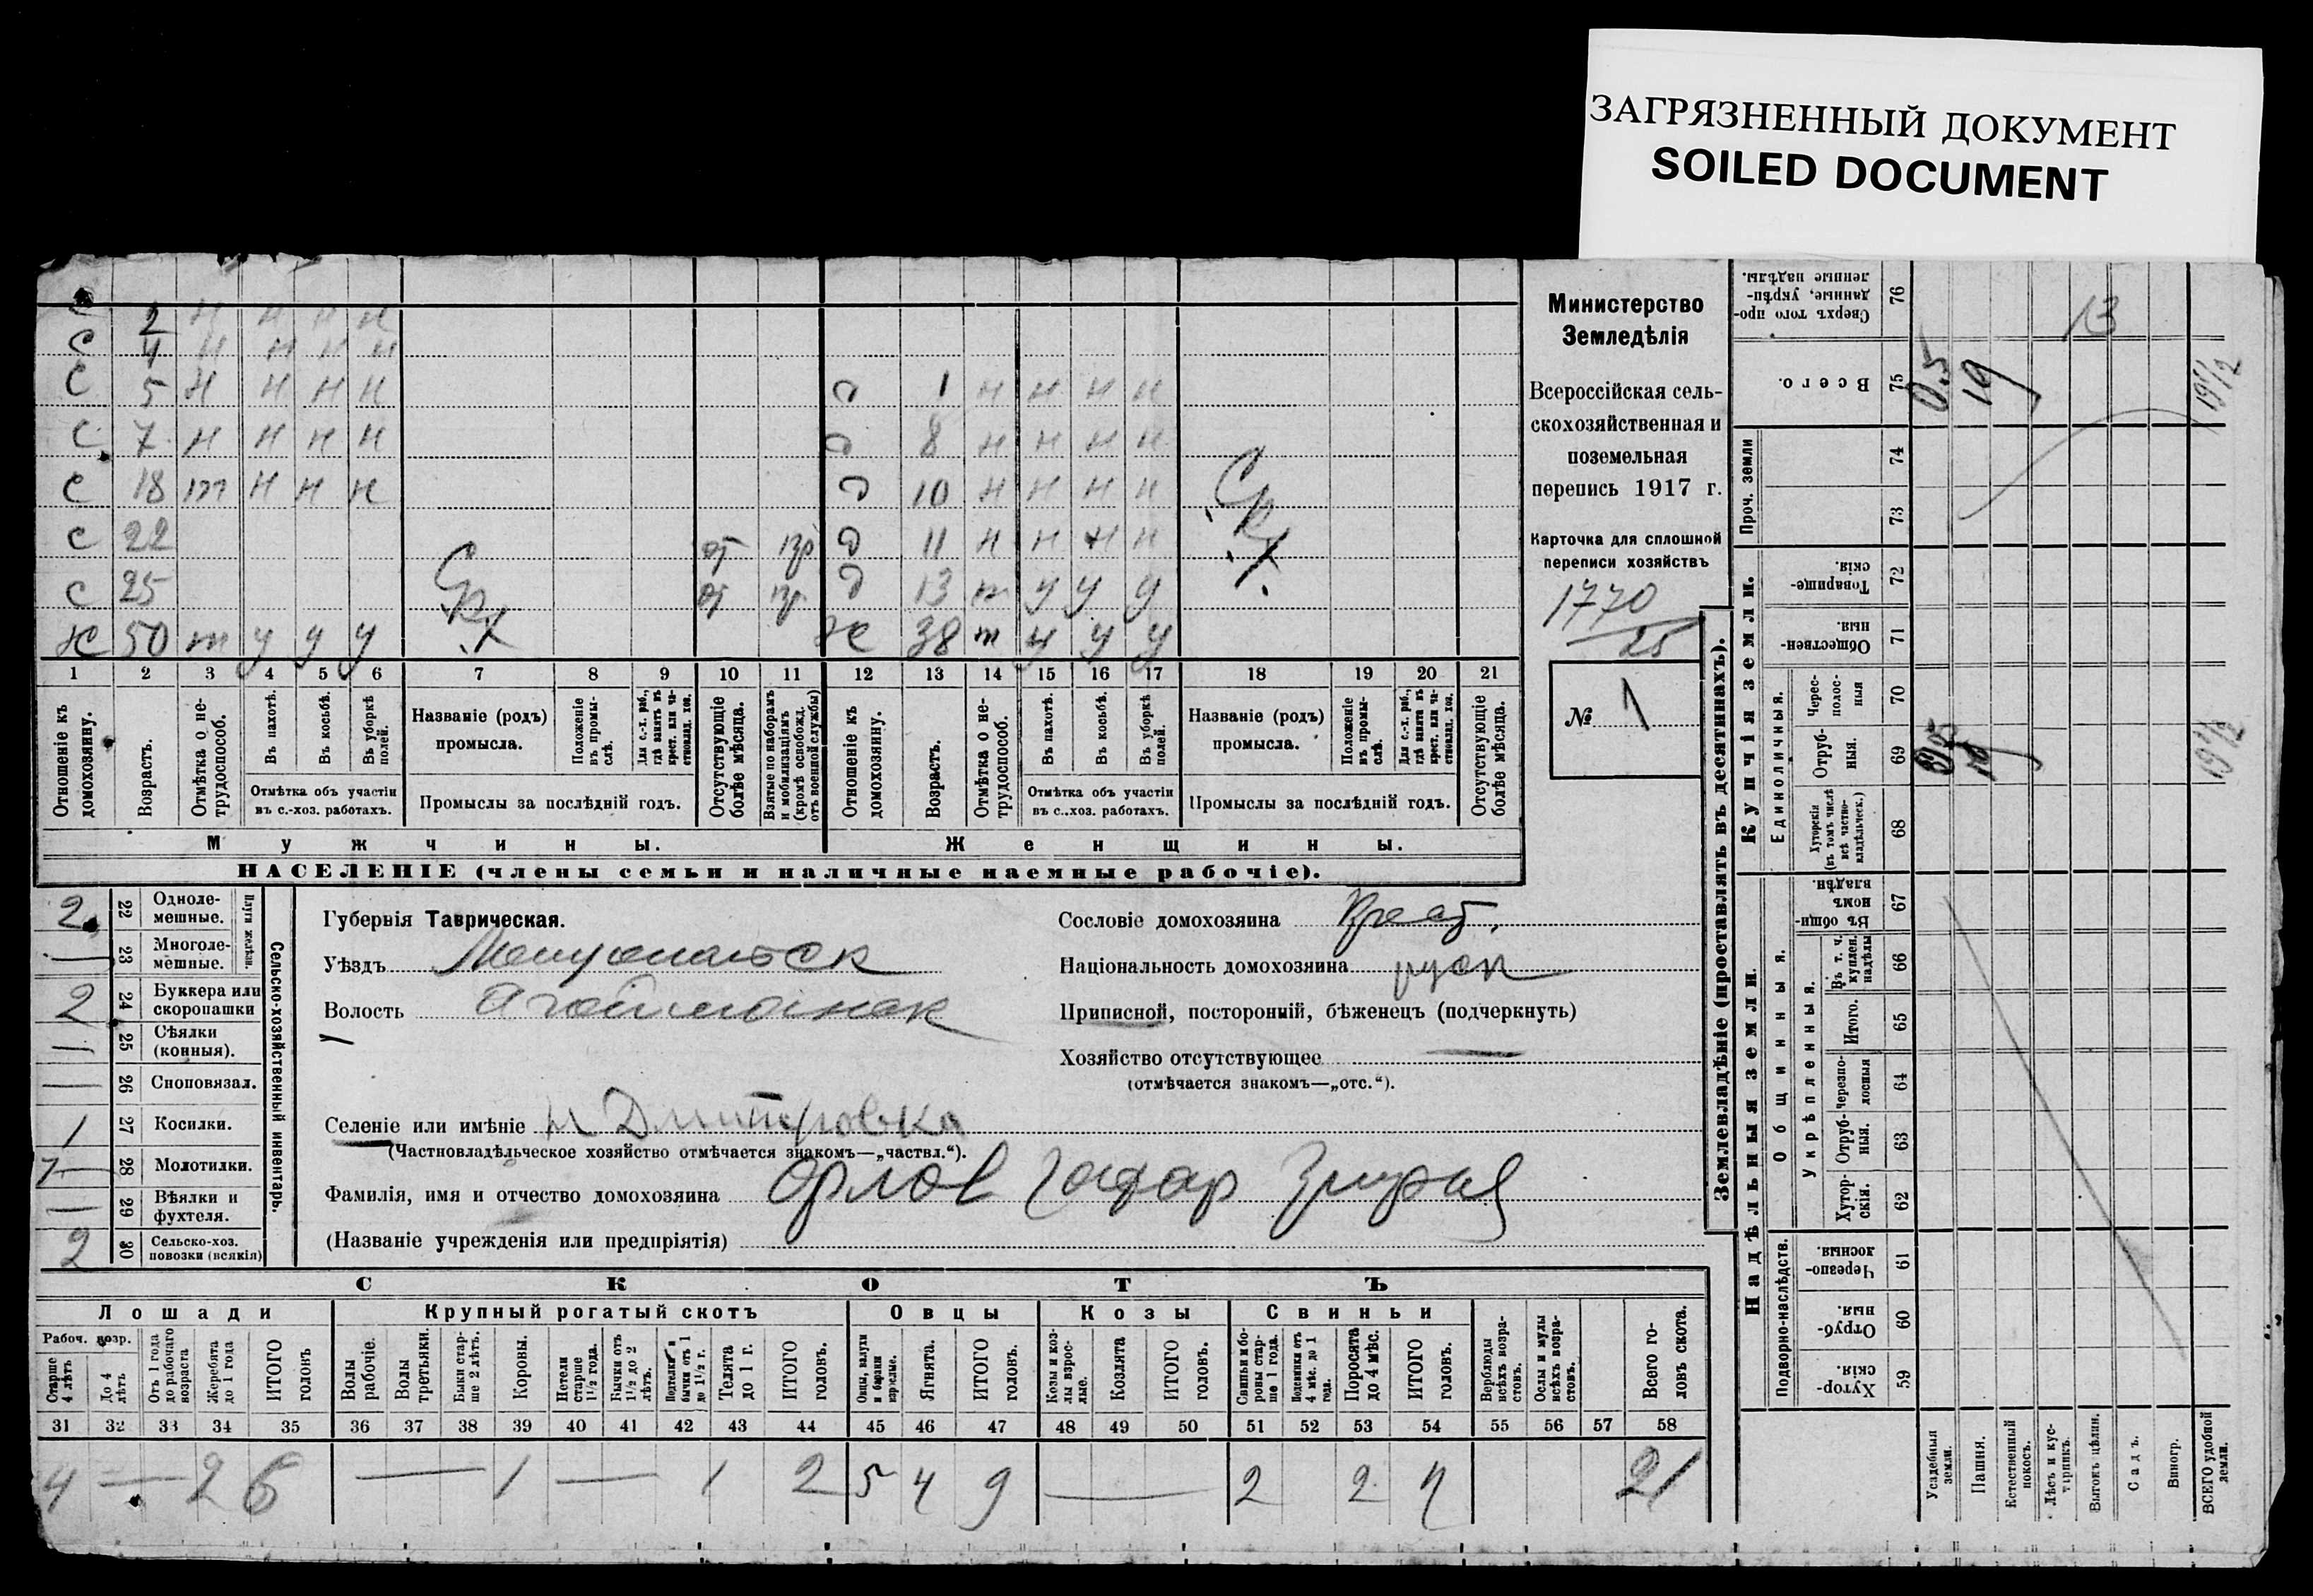 ЗАГРЯЗНЕННЫЙ ДОКУМЕНТ
SOILED DOCUMENT
С 2 н н н н
С 4 н н н н
С 5 н н н н о 1 н н н н
С 7 н н н н о 8 н н н н
С 18 т н н н о 10 н н н н
С 22 от о 11 н н н н
С 25 от о 13 т у у у
50 т у у у 38 т у у у
1 2 3 4 5 6 7 8 9 10 11 12 13 14 15 16 17 18 19 20 21
Отношеніе къ домохозяину.
Возрастъ.
Отмѣтка о нетрудоспособ.
Въ пахотѣ.
Въ косьбѣ.
Въ уборкѣ полей.
Отмѣтка объ участіи
въ с.-хоз. работахъ.
Названіе (родъ)
промысла.
Положеніе въ промыслѣ.
Для с.-х. раб., гдѣ занятъ въ крест. или частновлад. хоз.
Промыслы за послѣдній годъ.
Отсутствующіе болѣе мѣсяца.
Взятые по наборамъ и мобилизаціямъ (кромѣ освобожд. отъ военной службы)
Отношеніе къ домохозяину.
Возрастъ.
Отмѣтка о нетрудоспособ.
Въ пахотѣ.
Въ косьбѣ.
Въ уборкѣ полей.
Отмѣтка объ участіи
въ с..хоз. работахъ.
Названіе (родъ)
промысла.
Положеніе въ промыслѣ.
Для с.-х. раб., гдѣ занята въ крест. или частновлад. хоз.
Промыслы за послѣдній годъ.
Отсутствующіе болѣе мѣсяца.
Мужчины.
Женщины.
НАСЕЛЕНІЕ (члены семьи и наличные наемные рабочіе).
Министерство
Земледѣлія
Всероссійская сель-
скохозяйственная и
поземельная
перепись 1917 г.
Карточка для сплошной
переписи хозяйствъ
1770
25
№ 1
2 22 Одноле-
мешные.
— 23 Многоле-
мешные.
Плуги желѣзн.
2 24 Буккера или
скоропашки
— 25 Сѣялки
(конныя).
— 26 Сноповязал.
1 27 Косилки.
28 Молотилки.
— 29 Вѣялки и
фухтеля.
2 30 Сельско-хоз.
повозки (всякія)
Сельско-хозяйственный инвентарь.
Губернія Таврическая.
Уѣздъ
Волость
Селеніе или имѣніе Дмитровка
(Частновладѣльческое хозяйство отмѣчается знакомъ—„частвл.“).
Фамилія, имя и отчество домохозяина Орлов
(Названіе учрежденія или предпріятія)
Сословіе домохозяина Крест.
Національность домохозяина русск
Приписной, посторонній, бѣженецъ (подчеркнуть)
Хозяйство отсутствующее —
(отмѣчается знакомъ—„отс.“).
СКОТЪ
Лошади
Крупный рогатый скотъ
Овцы
Козы
Свиньи
Рабоч. возр.
Старше 4 лѣтъ
До 4 лѣтъ
Отъ 1 года до рабочаго возраста
Жеребята до 1 года
ИТОГО головъ
Волы рабочіе.
Волы третьяки.
Быки старше 2 лѣтъ.
Коровы.
Нетели старше 1½ года.
Бычки отъ 1½ до 2 лѣтъ.
Подтелки и бычки отъ 1 до 1½ г.
Телята до 1 г.
ИТОГО головъ.
Овцы, валухи и бараны взрослые.
Ягнята.
ИТОГО головъ.
Козы и козлы взрослые.
Козлята
ИТОГО головъ.
Свиньи и боровы старше 1 года.
Подсвинки отъ 4 мѣс. до 1 года.
Поросята до 4 мѣс.
ИТОГО головъ.
Верблюды всѣхъ возрастовъ.
Ослы и мулы всѣхъ возрастовъ.
Всего головъ скота.
31 32 33 34 35 36 37 38 39 40 41 42 43 44 45 46 47 48 49 50 51 52 53 54 55 56 57 58
4 — 2 6 — 1 — 1 2 5 4 9 — 2 2 4 21
Землевладѣніе (проставлять въ десятинахъ).
Купчія земли.
Надѣльныя земли.
Сверхъ того проданные, укрѣпленные надѣлы. 76 13
Всего. 75 0,5 19 19½
Проч. земли 74 73
Товарищескія. 72
Общественныя. 71
Единоличныя.
Чересполосныя 70
Отрубныя. 69 19 19½
Хуторскія (въ томъ числѣ всѣ частновладѣльческ.) 68
Общинныя.
Въ общинномъ владѣн. 67
Укрѣпленныя.
Въ т. ч. куплен. надѣлы 66
Итого. 65
Черезполосныя 64
Отрубныя. 63
Хуторскія. 62
Подворно-наслѣдств.
Черезполосныя. 61
Отрубныя. 60
Хуторскія. 59
Усадебныя земли.
Пашня.
Естественный покосъ.
Лѣсъ и кустарникъ.
Выгонъ цѣлин.
Садъ.
Виногр.
ВСЕГО удобной земли.